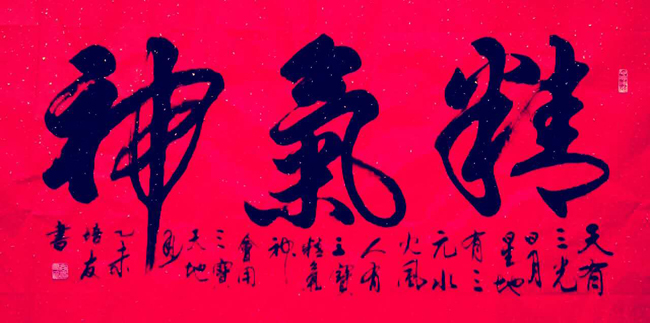 精氣神
天有
三光
日月
星地
有三
元水
火風
人有
三寶
精氣
神
會用
三寶
天地
乙未
培友
書